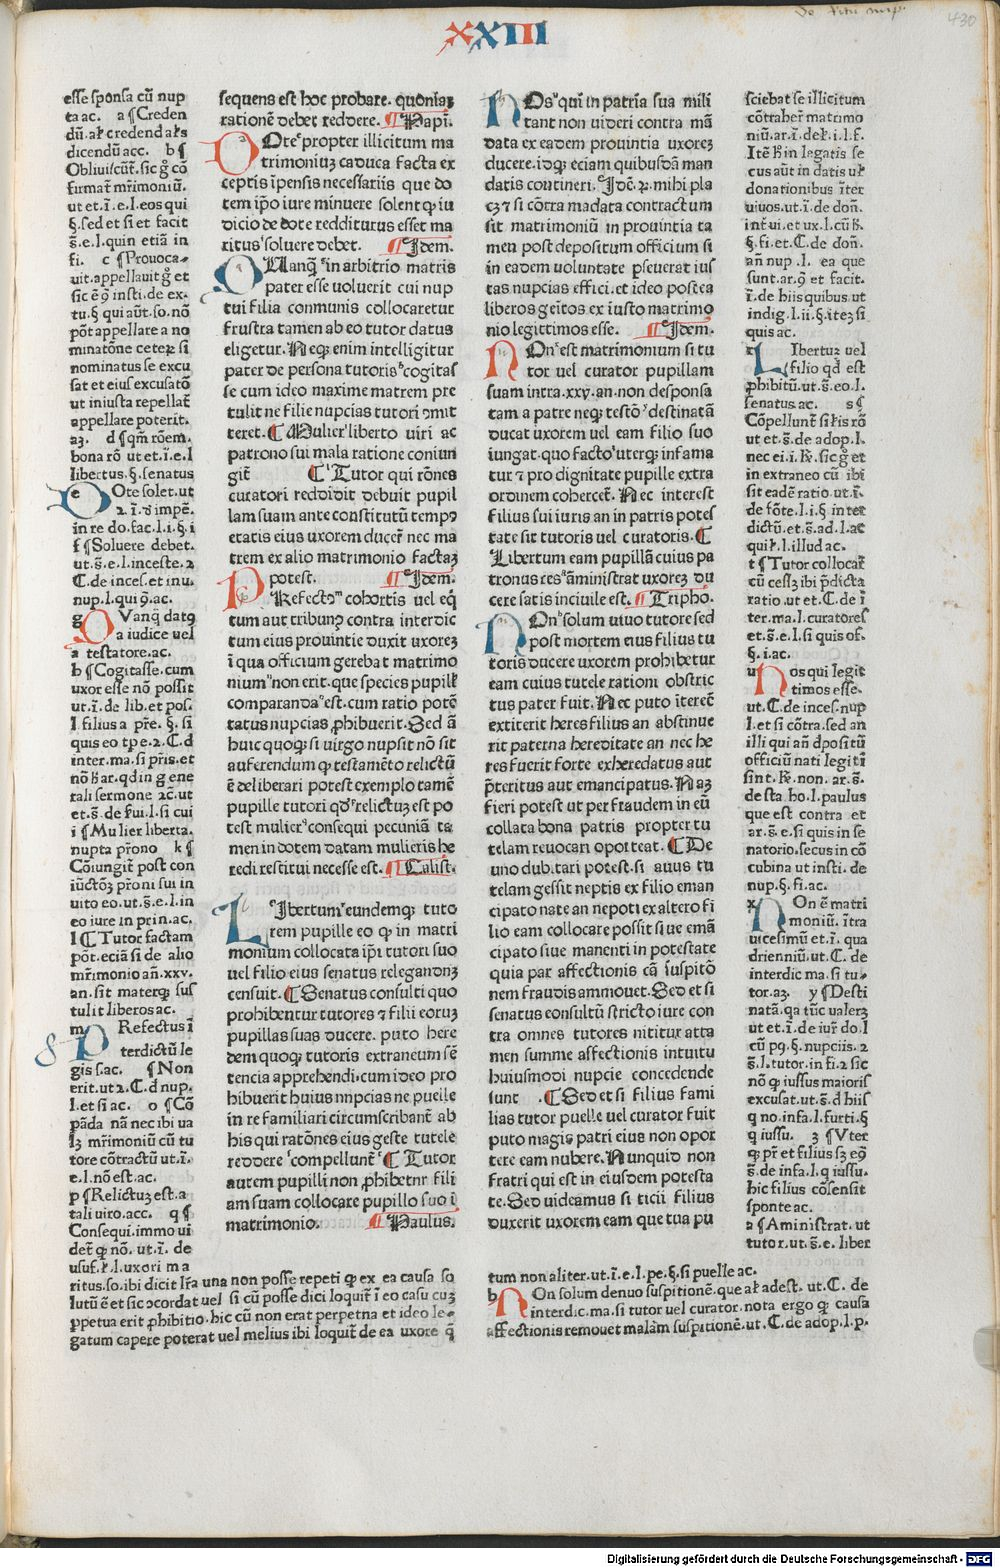 XXIII
430
esse sponsa cū nup
ta ac. a ¶ Creden
dū. aƚ credend aƚs
dicendū acc. b ¶
Obliuiscūt͛. sic gͦ cō
firmat mr̄imoniū.
ut et ī. e. l. eos qui
§. sed et si et facit
s̄. e. l. quin etiā in
fi. c ¶ Prouoca-
uit. appellauit gͦ et
sic ē ꝯ insti. de ex-
tu. § qui aūt. so. nō
pōt appellare a no
minatōne ceteꝝ si
nominatus se excu
sat et eius excusatō
ut iniusta repellat͛
appellare poterit.
az. d ¶ qm̄ rōem.
bona rō ut et. ī. e. l
libertus. §. senatus
e Dote solet. ut
2. ī. d impē.
in re do. fac. l. i. § i
f ¶ Soluere debet.
ut. s̄. e. l. inceste. 2
C. de inces. et inu.
nup. l. qui ꝯ. ac.
g Quanq̄ datꝯ
a iudice uel
a testatore. ac.
h ¶ Cogitasse. cum
uxor esse nō possit
ut. ī. de lib. et pos.
l filius a pr̄e. §. si
quis eo tp̄e. 2. C. d
inter. ma. si pr̄is. et
nō h̄ ar. qd in gene
rali sermone 2c. ut
et. s̄. de ẜui. l. si cui
i ¶ Mulier liberta.
nupta pr̄ono k ¶
Cōiungit͛ post con
iūctōꝫ pr̄oni sui in
uito eo. ut. s̄. e. l. in
eo iure in prin. ac.
l ¶ Tutor factam
pōt. eciā si de alio
mr̄imonio añ. xxv.
an. sit materꝙ sus
tulit liberos ac.
m Prefectus ī
terdictū le
gis s. ac. ¶ Non
erit. ut 2. C. d nup.
l. et si ac. o ¶ Cō
pāda nā nec ibi ua
lꝫ mr̄imoniū cū tu
tore cōtractū ut. ī.
e. l. nō est. ac.
p ¶ Relictuꝫ est. a
tali uiro. acc. q ¶
Consequi. immo ui
det͛ ꝙ nō. ut. ī. de
usuf. ƚ. l. uxori ma
ritus. so. ibi dicit lr̄a una non posse repeti ꝙ ex ea causa so
lutū ē et sic ↄcordat uel si cū posse dici loquit͛ ī eo casu cuꝫ
ꝑpetua erit ꝓhibitio. hic cū non erat perpetna et ideo le-
gatum capere poterat uel melius ibi loquit͛ de ea uxore q̄
sequens est hoc probare. quoniaꝫ
rationē debet reddere. ¶ Papi.
Dote propter illicitum ma
trimoniuꝫ caduca facta ex
ceptis īpensis necessariis que do
tem ip̄o iure minuere solent ꝙ iu
dicio de dote redditurus esset ma
ritus soluere debet. ¶ Idem.
Quanq̄ in arbitrio matris
pater esse uoluerit cui nup
tui filia conmunis collocaretur
frustra tamen ab eo tutor datus
eligetur. Neqꝫ enim intelligitur
pater de persona tutoris cogitas
se cum ideo maxime matrem pre
tulit ne filie nupcias tutori ꝑmit
teret. ¶ Mulier liberto uiri ac
patrono sui mala ratione coniun
git͛ ¶ Tutor qui rōnes
curatori reddidit debuit pupil
lam suam ante constitutū tempꝫ
etatis eius uxorem ducer̄ nec ma
trem ex alio matrimonio factaꝫ
potest. ¶ Idem.
Prefectꝯ cohortis uel eq̄
tum aut tribunꝯ contra interdic
tum eius prouintie duxit uxoreꝫ
ī qua officium gerebat matrimo
nium non erit. que species pupill̄
comparanda est. cum ratio potē
tatus nupcias ꝓhibuerit. Sed ā
huic quoqꝫ si uirgo nupsit nō sit
auferendum ꝙ testamēto relictū
ē deliberari potest exemplo tamē
pupille tutori qd̕ relictuꝫ est po
test mulier consequi pecuniā ta
men in dotem datam mulieris he
redi restitui necesse est. ¶ Calist.
Libertum eundemqꝫ tuto
rem pupille eo ꝙ in matri
monium collocata ip̄i tutori suo
uel filio eius senatus relegandnꝫ
censuit. ¶ Senatus consulti quo
prohibentur tutores ⁊ filii eoruꝫ
pupillas suas ducere. puto here
dem quoqꝫ tutoris extraneum sē
tencia apprehendi. cum ideo pro
hibuerit huius nnpcias ne puelle
in re familiari circumscribant͛ ab
his qui ratōnes eius geste tutele
reddere compellunt͛ ¶ Tutor
autem pupilli non ꝓhibetnr fili
am suam collocare pupillo suo ī
matrimonio. ¶ Paulus.
Nos qui in patria sua mili
tant non uideri contra mā
data ex eadem prouintia uxoreꝫ
ducere. idqꝫ eciam quibusdā man
datis contineri. Idē. ꝝ. mihi pla
cꝫ ⁊ si cōtra madata contractum
sit matrimoniū in prouintia ta
men post depositum officium si
in eadem voluntate ꝑseuerat ius
tas nupcias effici. et ideo postea
liberos geitos ex iusto matrimo
nio legittimos esse. ¶ Idem.
Non est matrimonium si tu
tor uel curator pupillam
suam intra. xxv. an. non desponsa
tam a patre neqꝫ testō destinatā
ducat uxorem uel eam filio suo
iungat. quo facto uterqꝫ infama
tur ⁊ pro dignitate pupille extra
ordinem cohercet͛. Nec interest
filius sui iuris an in patris potes
tate sit tutoris uel curatoris. ¶
Libertum eam pupillā cuius pa
tronus res āministrat uxoreꝫ du
cere satis inciuile est. ¶ Tripho.
Non solum uiuo tutore sed
post mortem eius filius tu
toris ducere uxorem prohibetur
eam cuius tutele rationi obstric
tus pater fuit. Nec puto iterēē
extiterit heres filius an abstinue
rit paterna hereditate an nec he
res fuerit forte exheredatus aut
p̄teritus aut emancipatus. Naꝫ
fieri potest ut per fraudem in eū
collata bona patris propter tu
telam reuocari oporteat. ¶ De
uno dubitari potest. si auus tu
telam gessit neptis ex filio eman
cipato nate an nepoti ex altero fi
lio eam collocare possit siue emā
cipato siue manenti in potestate
quia par affectionis cā suspitō
nem fraudis ammouet. Sed et si
senatus consultū stricto iure con
tra omnes tutores nititur atta
men summe affectionis intuitu
huiusmodi nupcie concedende
sunt . ¶ Sed et si filius fami
lias tutor puelle uel curator fuit
puto magis patri eius non opor
tere eam nubere. Nunquid non
fratri qui est in eiusdem potesta
te. Sed uideamus si ticii filius
duxerit uxorem eam que tua pu
sciebat se illicitum
cōtrahere matrimo
niū. ar. ī. de ƚ. i. l. f.
Itē h̄ in legatis se
cus aūt in datis uƚ
donationibus īter
uiuos. ut. ī. de don̄.
int̄ ui. et ux. l. cū h̄.
§. fi. et. C. de don̄.
añ nup . l. ea que
sunt. ar. ꝯ et facit.
ī. de hiis quibus ut
indig. l. ii. §. iteꝫ si
quis ac.
r Libertuꝫ uel
filio qd̄ est
ꝓhibitū. ut. s̄. eo. l.
senatus. ac. s ¶
Cōpellunt͛ si ƚis rō
ut et. s̄. de adop. l.
nec ei. i. R̄. sic gͦ et
in extraneo cū ibi
sit eadē ratio ut. ī.
de fōte. l. i. § inter
dictū. et. s̄. ad. l. ac
quiƚ. l. illud ac.
t ¶ Tutor collocar̄
cū cesꝫ ibi p̄dicta
ratio. ut et. C. de ī
ter. ma. l. curatores
et. s̄. e. l. si quis of.
§. i. ac.
u Nos qui legit
timos esse.
ut. C. de inces. nup
l. et si cōtra. sed an
illi qui añ dpositū
officiū nati legitī
sint. R̄. non. ar. s̄.
de sta. ho. l. paulus
que est contra et
ar. s̄. e. si quis in se
natorio. secus in cō
cubina ut insti. de
nup. §. fi. ac.
x Non ē matri
moniū. ītra
uicesimū et. ī. qua
drienniū. ut. C. de
interdic ma. si tu-
tor. aꝫ. y ¶ Desti
natā. qa tūc ualerꝫ
ut et. ī. de iur̄ do. l
cū pꝯ. §. nupciis. 2
s̄. l. tutor. in fi. 2 sic
nō ꝙ iussus maioris
excusat. ut. s̄. d hiis
q no. infa. l. furti. §
q iussu. z ¶ Uter
ꝙ pr̄ et filius sꝫ eꝯ
s̄. de infa. l. q iussu.
hic filius cōsensit
sponte ac.
a ¶ Aministrat. ut
tutor. ut. s̄. e. liber
tum non aliter. ut. ī. e. l. pe. §. si puelle ac.
b Non solum denuo suspitionē. que aƚ adest. ut. C. de
interdic. ma. si tutor uel curator. nota ergo ꝙ causa
affectionis remouet malam suspitionē. ut. C. de adop. l. p.
Digitalisierung gefördert durch die Deutsche Forschungsgemeinschaft - DFG